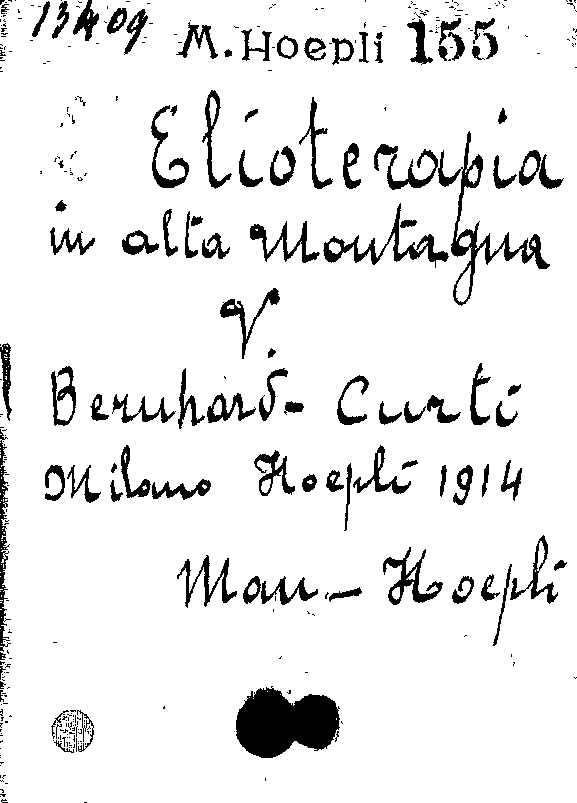 13409 M. Hoepli 155
Elioterapia
in alta Montagna
V.
Bernhard - Curti
Milano Hoepli 1914
Man - Hoepli